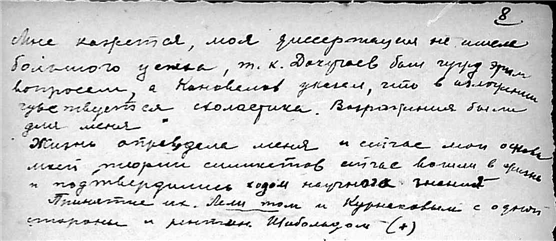 8
Мне кажется, моя диссертация не имела
большого успеха, т. к. Докучаев был чужд этим
вопросам, а Коновалов указал, что в изложении
чувствуется схоластика. Возражения были
для меня
Жизнь оправдала меня и сейчас мои основы
моей теории силикатов сейчас вошли в жизнь
и подтвердились ходом научного знания
Принятие их. том и Курнаковым с одной
стороны и рентген. Шибольдом (+)